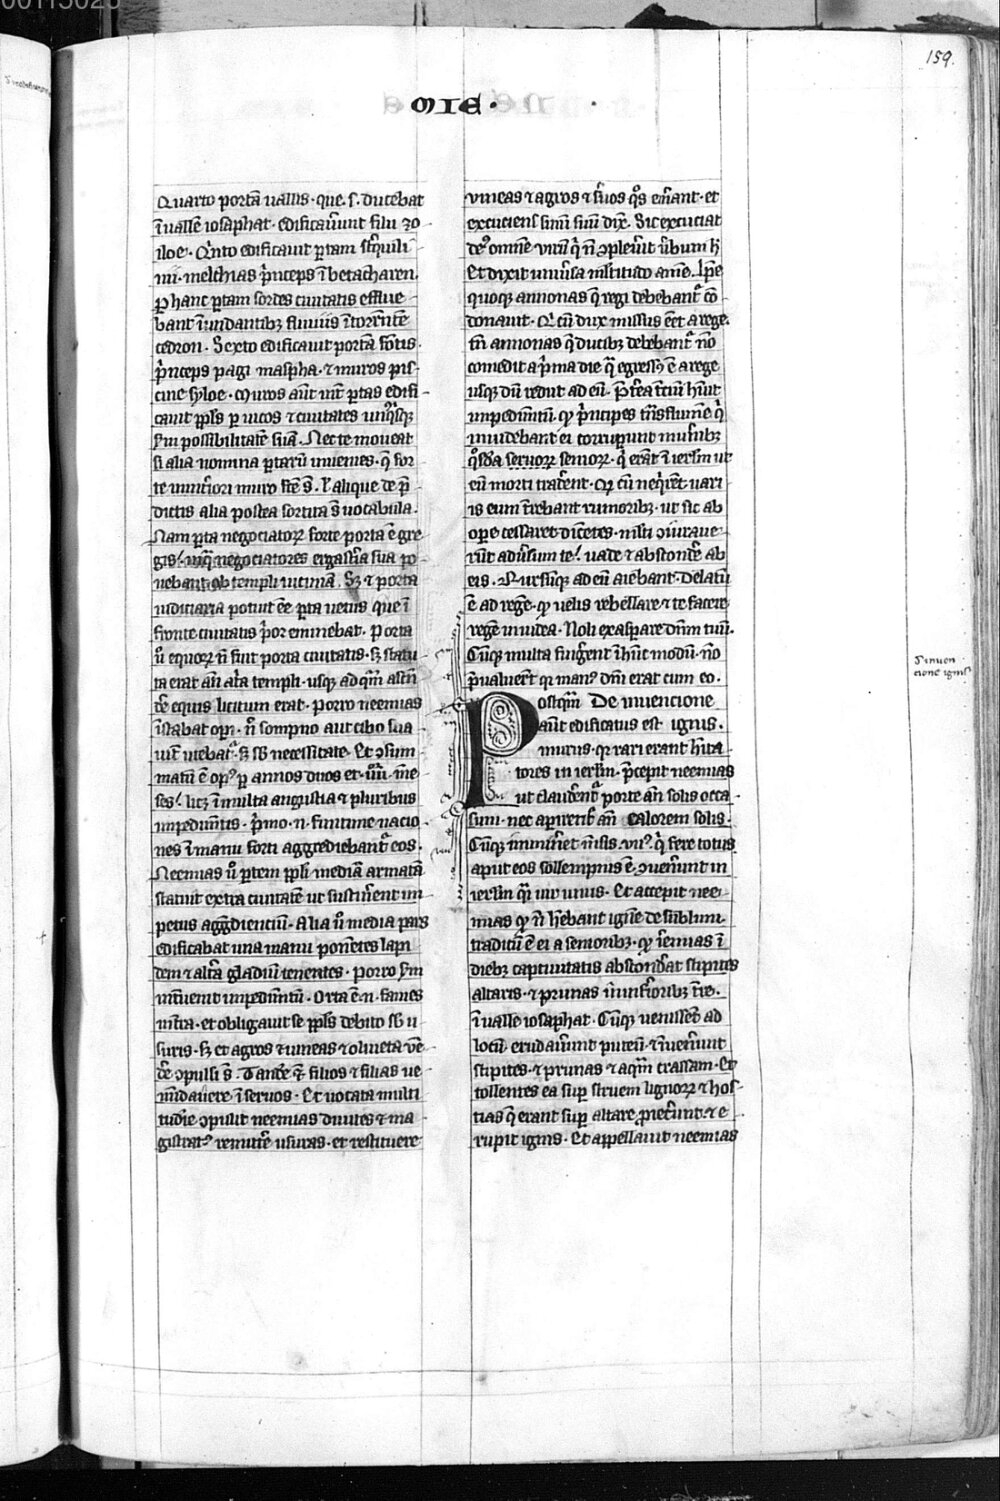 159.
MIE.
Quarto portā uallis. que. s. ducebat
ī ualle iosaphat. edificauerunt filii zo
iloe. Qͥnto edificauit ꝑtam sterquili
nii. melchias pͥnceps ī betacharen.
ꝑ hanc ꝑtam sordes ciuitatis efflue
bant īundantibꝫ fluuiis ī torrente
cedron. Sexto edificauit portā fōtis.
pͥnceps pagi maspha. ⁊ muros pis
cine syloe. Muros aūt int̄ ꝑtas edifi
cauit ppl̄s ꝑ uicos ⁊ ciuitates
s̄m possibilitatē suā. Nec te moueat
si alia nomina ꝑtarū inuenies. q̄ for
te in interiori muro
dictis alia postea sortita s̄ uocabula.
Nam ꝑta negociatoꝝ forte porta ē gre
gis. negociatores ergastēa sua po
nebant ob templi uiciniā. Sꝫ ⁊ porta
iudiciaria potuit ēē ꝑta uetus que ī
fronte ciuitatis pͥor eminebat. Porta
ū equoꝝ n̄ fuit porta ciuitatis. sꝫ statu
ta erat an̄ atͥa templi. usqꝫ ad qm̄
de equis licitum erat. Porro neemias
īstabat opͥ. n̄ sompno aut cibo sua
uit̄ utebatᷣ. sꝫ necessitate. Et ↄsum
matū ē opꝰ ꝑ annos duos et. me
ses. licꝫ ī multa angustia ⁊ pluribus
impedim̄tis. pͥmo. n. finitime nacio
nes ī manu forti aggrediebantᷣ eos.
Neemias ū ꝑtem ppl̄i mediā armatā
statuit extra ciuitatē ut sustinerent im
petus agg̃dienciū. Alia ū media pars
edificabat una manu ponētes lapi
dem ⁊ alt̄a gladiū tenentes. Porro
impedim̄tū. Orta ē. n. fames
et obligauit se ppl̄s debito sb̄ u
suris. sꝫ et agros ⁊ uineas ⁊ oliueta uē
de ↄpulsi s̄. Tandē filios ⁊ filias ue
ī seruos. Et uocata multi
tudīe ↄpulit neemias diuites ⁊ ma
gistratꝰ remittē usuras. et restituere
uineas ⁊ agros ⁊ s̄uos qͦs em̄ant. et
excuciens sinū suū dix̄. Sic excuciat
deꝰ omnē uirū qͥ n̄ ↄpleuerit ūbum h̄
Et dixit uniūsa multitudo amē.
quoqꝫ annonas q̄ regi debebantᷣ cō
donauit. cū dux missus eēt a rege.
annonas q̄ ducibꝫ debebantᷣ nō
comedit a pͥma die qͣ egressꝰ ē a rege
usqꝫ dū rediit ad eū. Pret̄ea
impedim̄tū. pͥncipes
inuidebant ei corruperunt mun̄ibꝫ
qͦsda seruoꝝ senioꝝ. qͥ erāt ī ierl̄m ut
eū morti tradent. cū neqͥrēt uari
is eum rumoribꝫ. ut sic ab
ope cessaret dicētes. ↄiuraue
rūt adūsum te. uade ⁊ abscondē ab
eis. Rursūqꝫ ad eū aiebant. Delatū
ē ad regē. uelis rebellare ⁊ te facere
regē in iudea. Noli exasꝑare dn̄m tuū.
Cūqꝫ multa ī hūc modū. nō
pͣualuert̄ manꝰ dn̄i erat cum eo.
Postqͣm De inuencione
aūt edificatus est ignis.
murus. rari erant hīta
tores in ierl̄m. pͣcepit neemias
ut claudentᷣ porte an̄ solis occa
sum. nec aperirētᷣ an̄ calorem solis.
Cūqꝫ im̄ineret m̄sis. qͥ fere totus
aput eos sollempnis ē. ↄuenerunt in
ierl̄m qͣsi uir unus. Et accepit nee
mias n̄ h̄ebant ignē de sublimi.
traditū ē ei a senioribꝫ. ieremias ī
diebꝫ captiuitatis absconderat stipites
altaris. ⁊ prunas
ī ualle iosaphat. Cūqꝫ uenisset ad
locū. erudauerunt puteū. ⁊ inuenerunt
stipites. ⁊ prunas ⁊ aqͣm crassam. Et
tollentes ea suꝑ struem lignoꝝ ⁊ hos
tias q̄ erant suꝑ altare. ⁊ e
rupit ignis. Et appellauit neemias
inuen
cione ignis